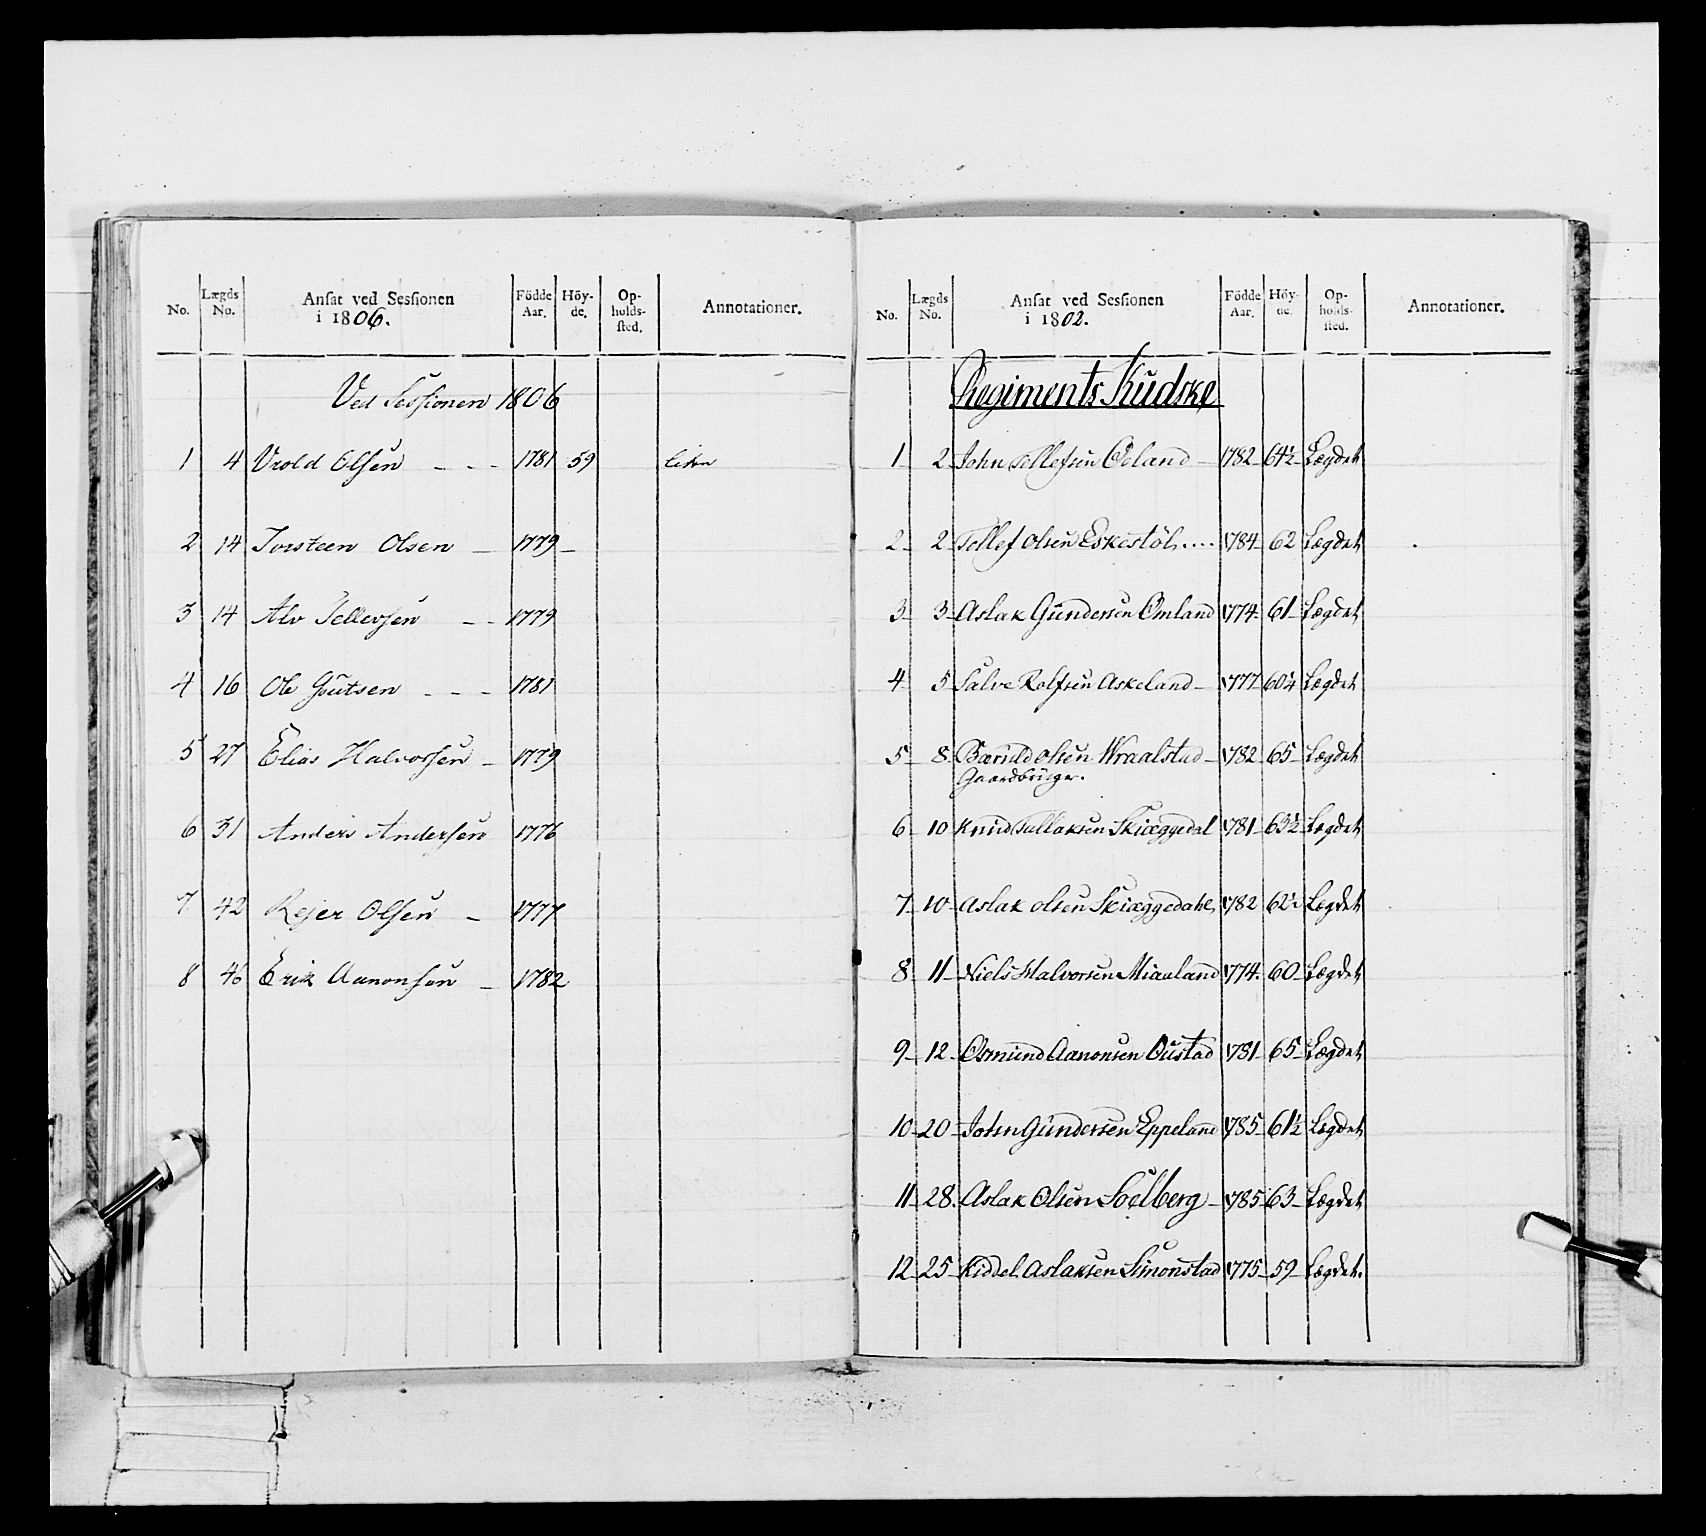 No. | Lægds No. | Ansat ved Sessionen i 1806. | Födde Aar. | Höy-de. | Op-holds-sted. | Annotationer.
Ved Sessionen 1806
1 4 Vrold Olsen - - - 1781 59
2 14 Torsteen Olsen - 1779 -
3 14 Alv Tellevsen - - 1779
4 16 Ole Goutsen - - - 1781
5 27 Elias Halvorsen - 1779
6 31 Anders Andersen 1776
7 42 Rejer Olsen - 1777
8 46 Erik Aanonsen - 1782
No. | Lægds No. | Ansat ved Sessionen i 1802. | Födde Aar. | Höy-de. | Op-holds-sted. | Annotationer.
Regiments Kudske
1 2 John Tellefsen Ouland - 1782 64½ Lægdet
2 2 Tellef Olsen Eskestöl .... 1784 62 Lægdet
3 3 Aslak Gundersen Omland 1774 61 Lægdet
4 5 Salve Rolfsen Askeland - 1777 60¼ Lægdet
5 8 Olsen Wraalstad - 1782 65 Lægdet
Gaardbruger.
6 10 Knud Tallaksen Skiæggedal 1781 63½ Lægdet
7 10 Aslak Olsen Skiæggedahl 1782 62½ Lægdet
8 11 Niels Halvorsen Miaaland 1774 60 Lægdet
9 12 Osmund Aanonsen Oustad 1781 65 Lægdet
10 20 John Gundersen Eppeland 1785 61½ Lægdet
11 28. Aslak Olsen Soelberg - 1785 63 Lægdet
12 25 Kiddel Aslaksen Simonstad 1775 59 Lægdet.